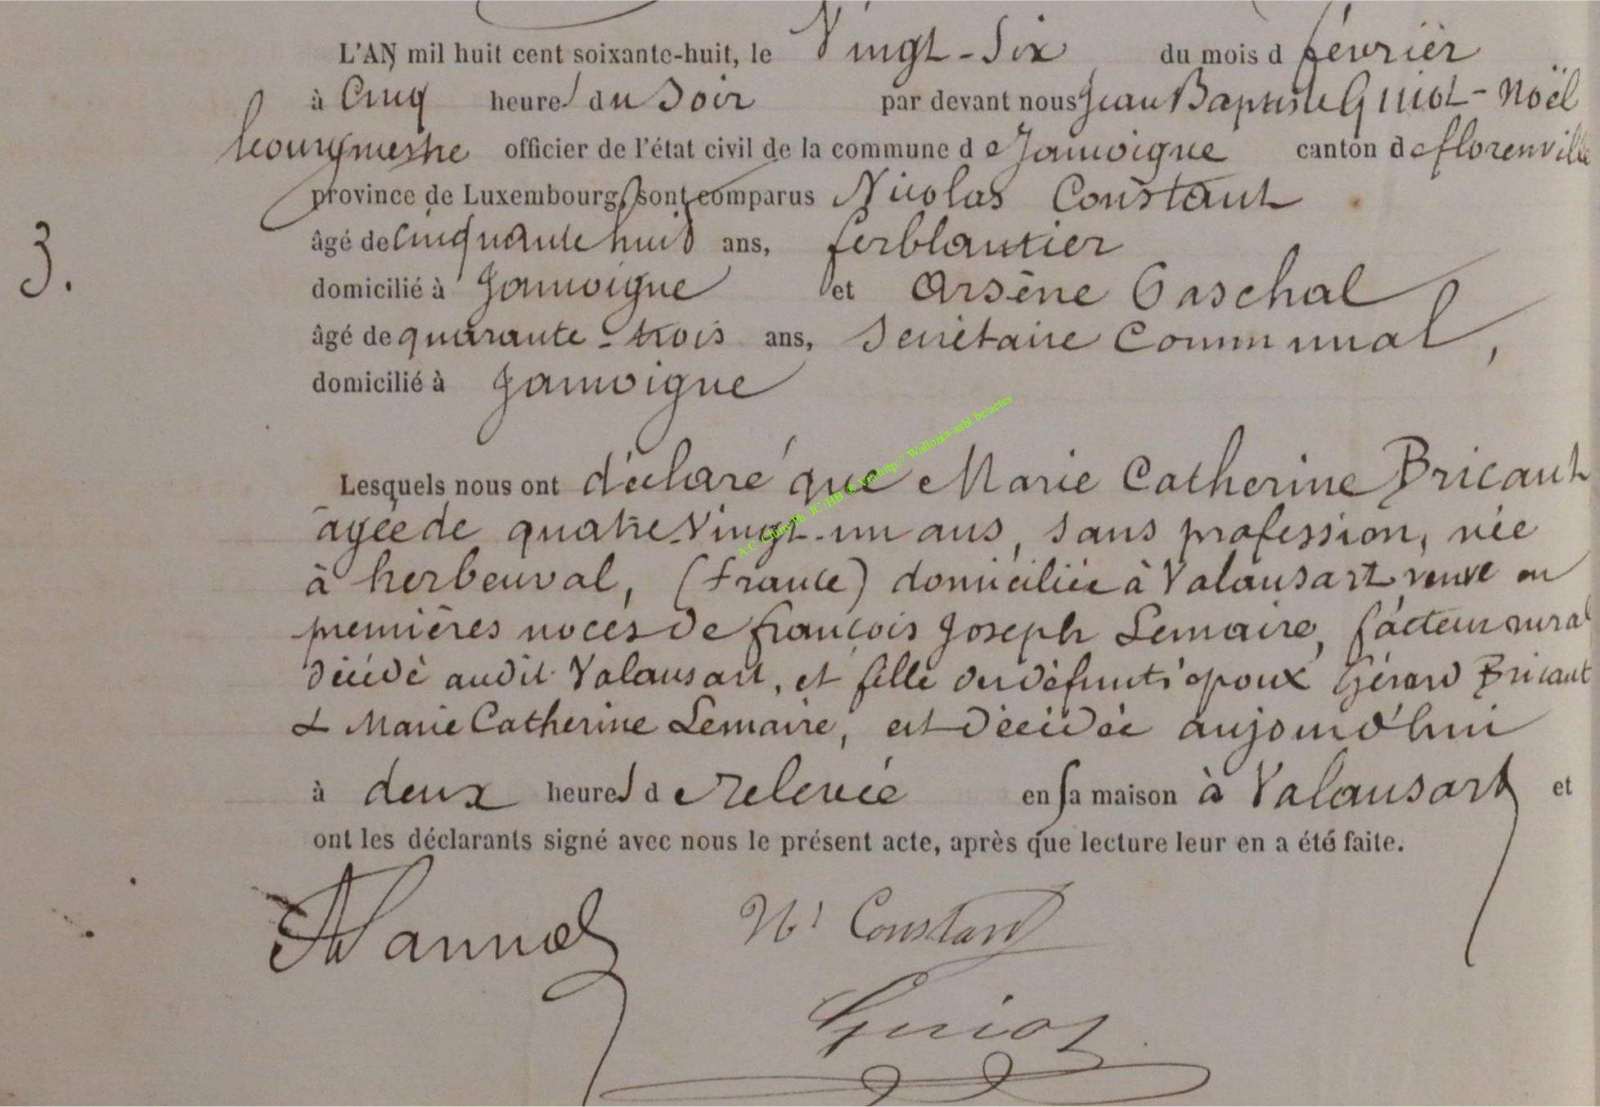 L'AN mil huit cent soixante-huit, le Vingt-Six du mois d février
à Cinq heures du Soir par devant nous Jean Baptiste Guiot-Noël
bourgmestre officier de l'état civil de la commune de Jamoigne canton de florenville
province de Luxembourg, sont comparus Nicolas Constant
3. âgé de cinquante huit ans, ferblantier
domicilié à Jamoigne et Arsène Paschal
âgé de quarante-trois ans, Secrétaire Communal,
domicilié à Jamoigne
Lesquels nous ont déclaré que Marie Catherine Bricaut
agée de quatre-Vingt-un ans, sans profession, née
à herbeuval, (france) domiciliée à Valansart, veuve en
premières noces de françois Joseph Lemaire, facteur rural
décédé audit Valansart, et fille des défunts époux Gérard Bricaut
& Marie Catherine Lemaire, est décédée aujourd'hui
à deux heures de relevée en sa maison à Valansart et
ont les déclarants signé avec nous le présent acte, après que lecture leur en a été faite.
Constant
Guiot